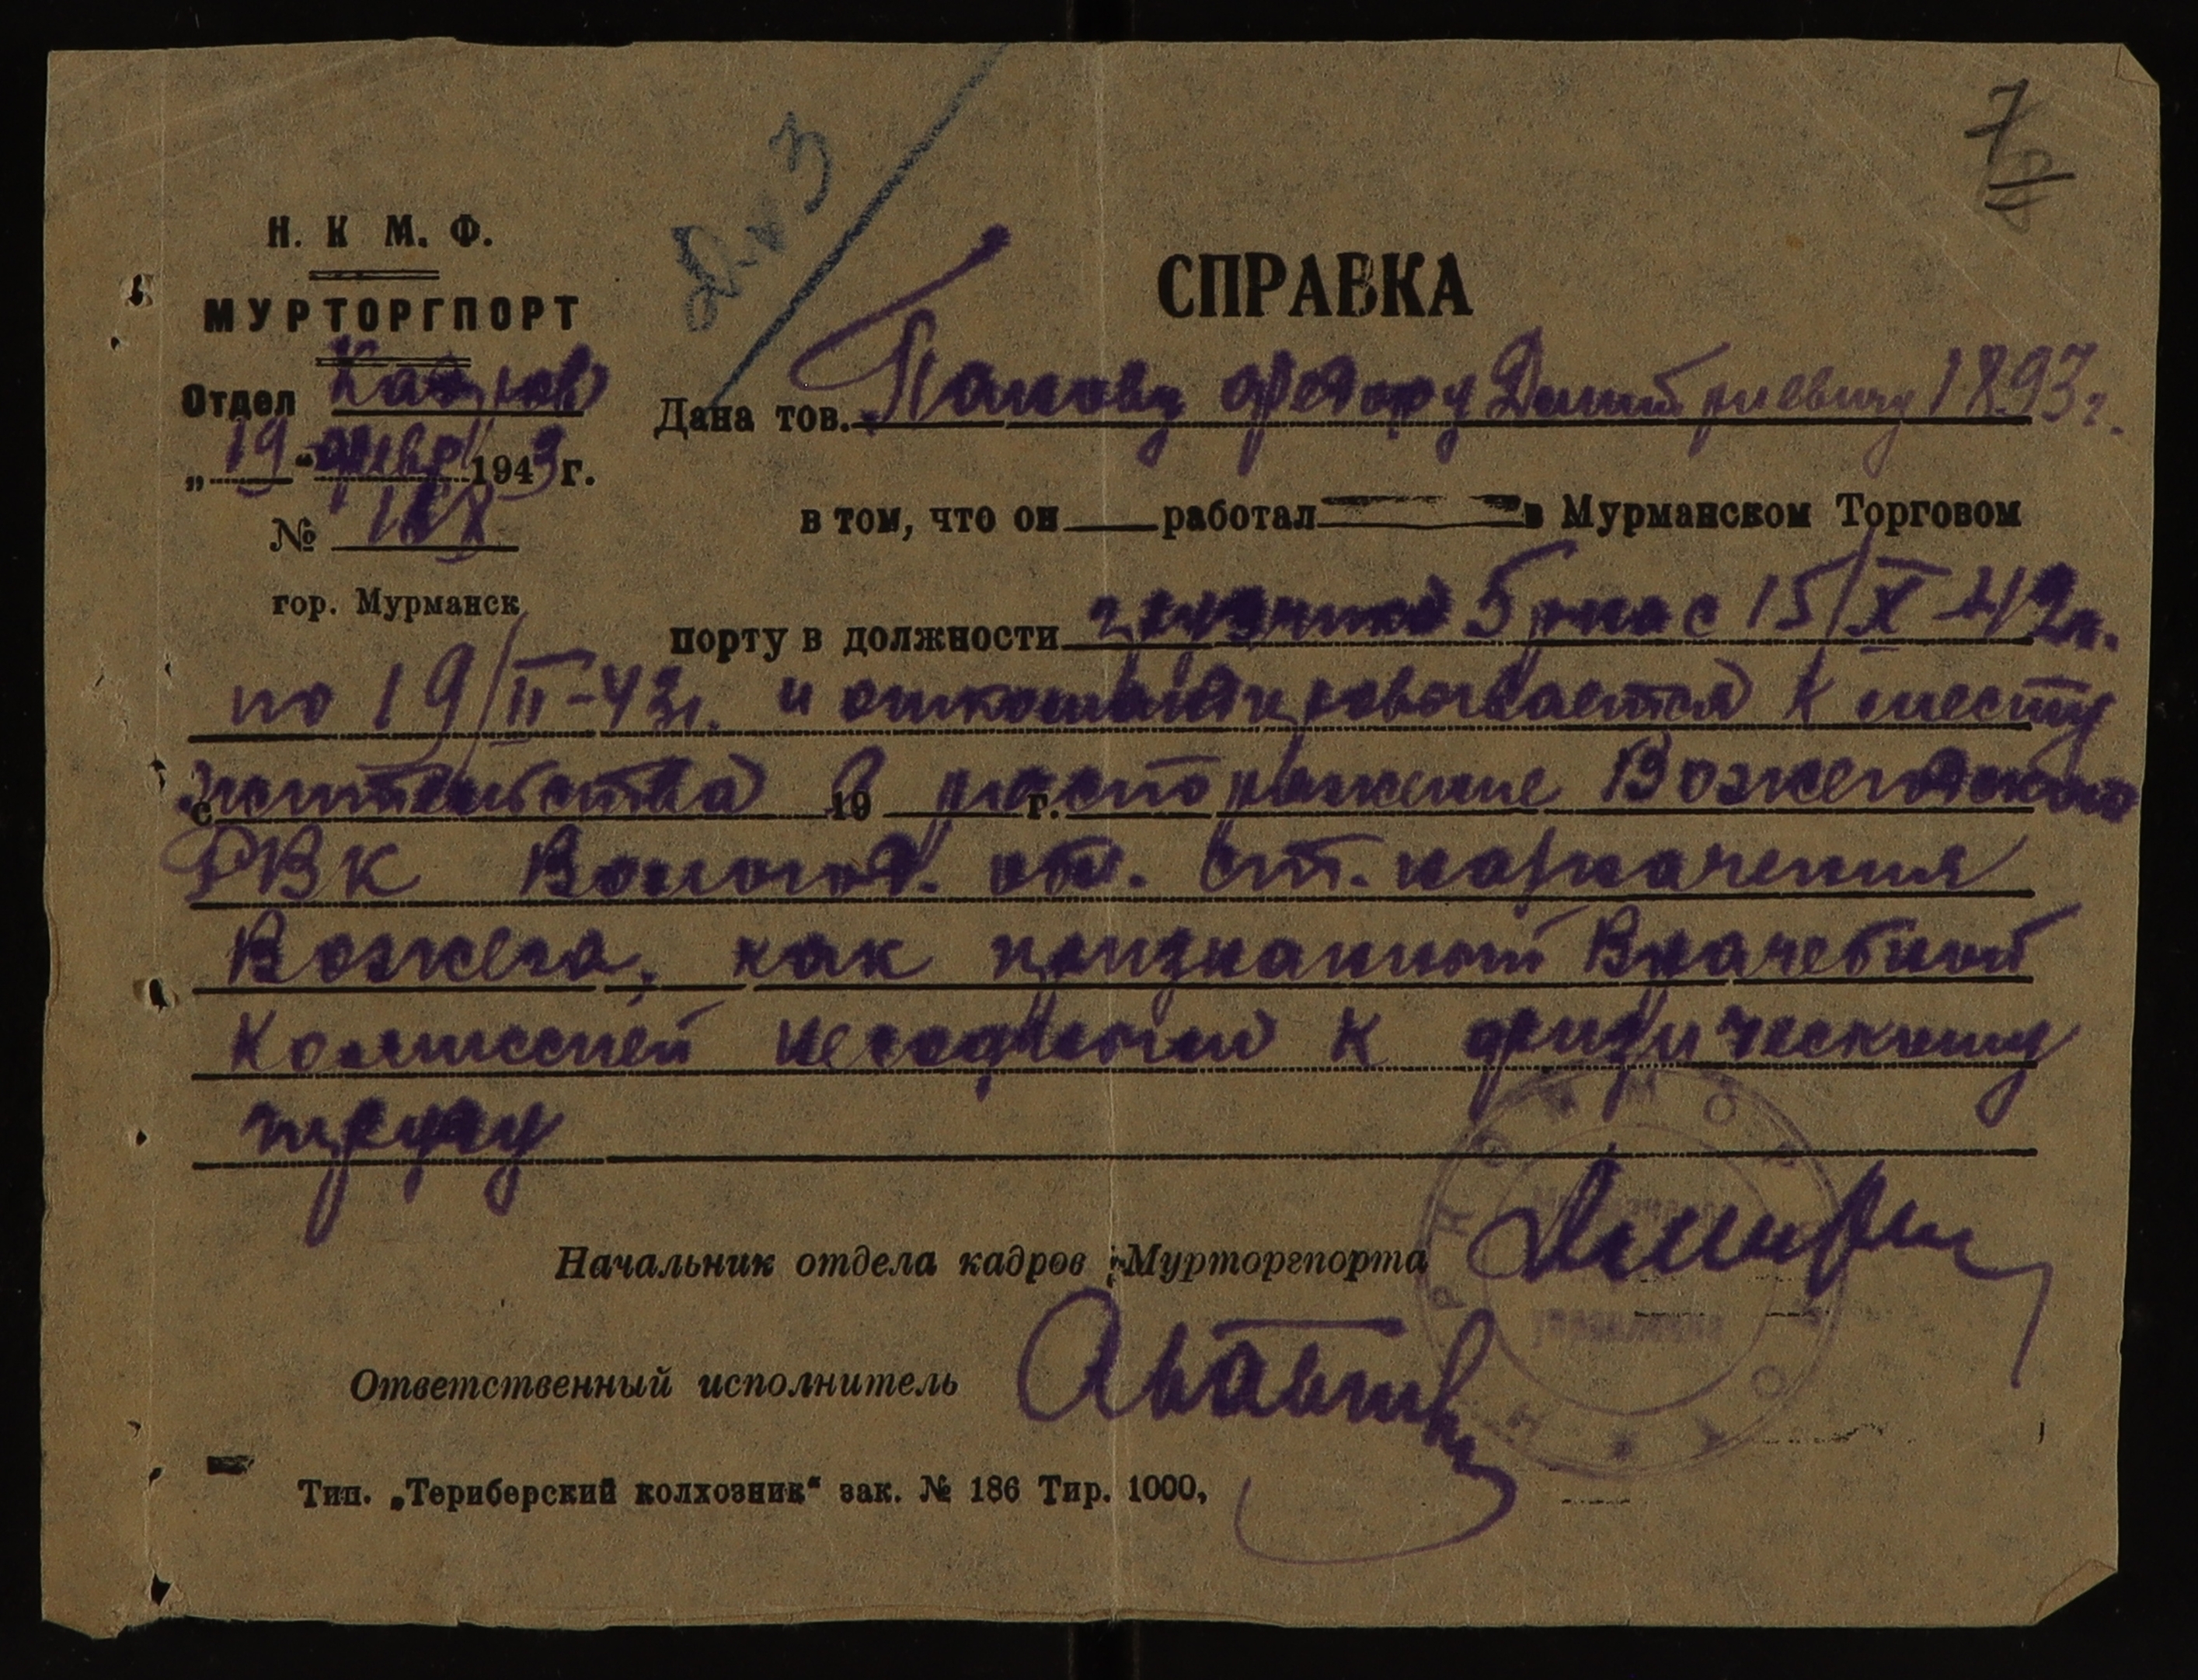 7
Н. К М. Ф.
МУРТОРГПОРТ
Отдел Кадров
„19“ февр 1943 г.
№
гор. Мурманск
СПРАВКА
Дана тов. Панову Федору Дмитриевичу 1893 г.
в том, что он работал в Мурманском Торговом
порту в должности грузчика 5 р-на с 15/X-42 г.
по 19/II-43 г. и откомандировывается к месту
с жительства 19 в распоряжение г. Вожегодского
РВК Вологод. обл. ст. назначения
Вожега, как признанный Врачебной
Комиссией негодным к физическому
труду
Начальник отдела кадров Мурторгпорта
Ответственный исполнитель
Тип. „Териберский колхозник“ зак. № 186 Тир. 1000,